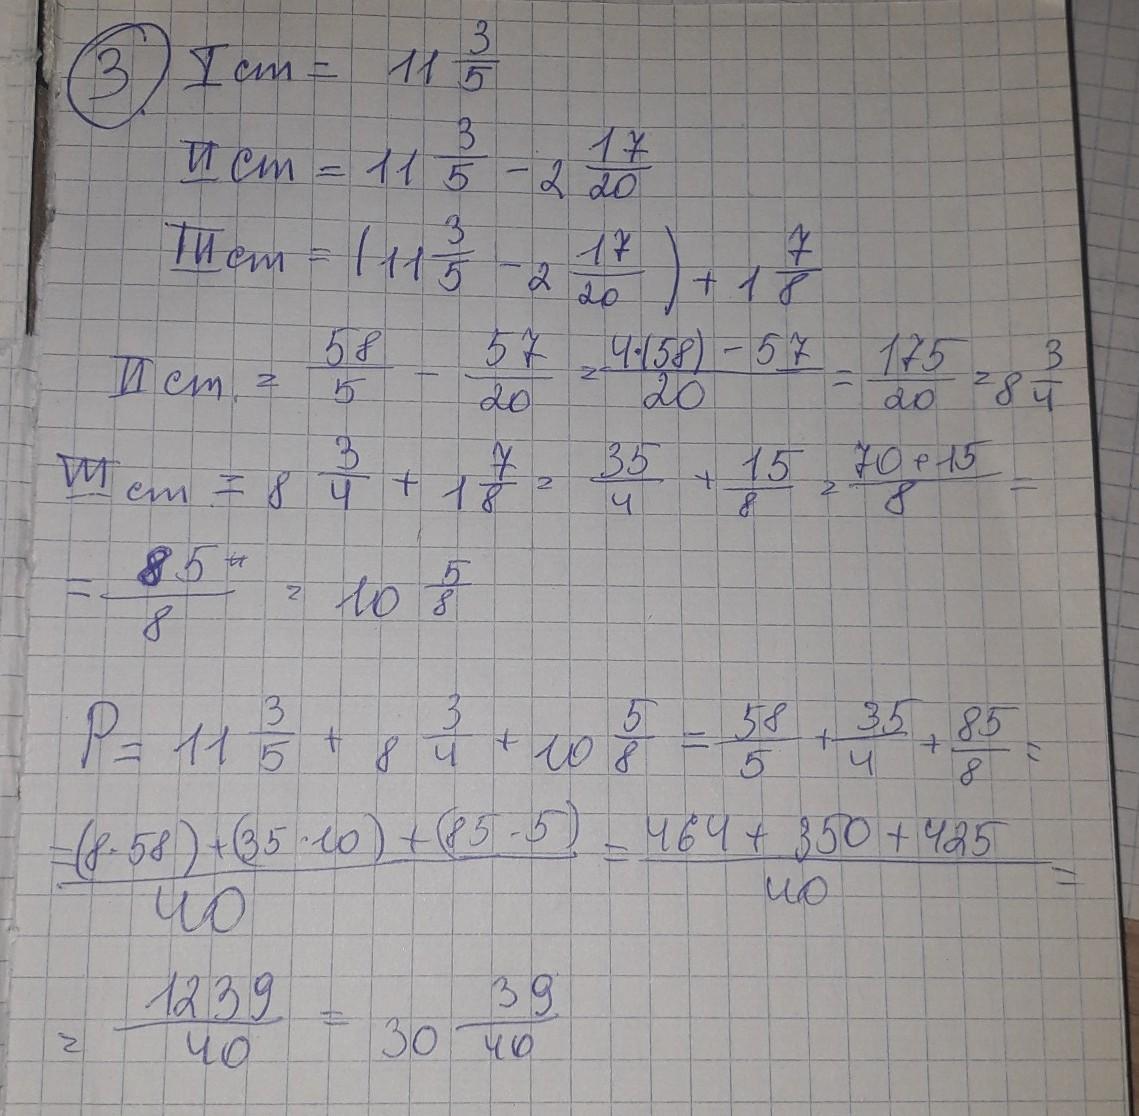 3. I ст = 11 3/5
II ст = 11 3/5 - 2 17/20
III ст = (11 3/5 - 2 17/20) + 1 7/8
II ст. = 58/5 - 57/20 = 4·(58) - 57/20 = 175/20 = 8 3/4
III ст = 8 3/4 + 1 7/8 = 35/4 + 15/8 = 70+15/8 =
= 85/8 = 10 5/8
P = 11 3/5 + 8 3/4 + 10 5/8 = 58/5 + 35/4 + 85/8 =
= (8·58)+(35·10)+(85·5)/40 = 464+350+425/40 =
= 1239/40 = 30 39/40